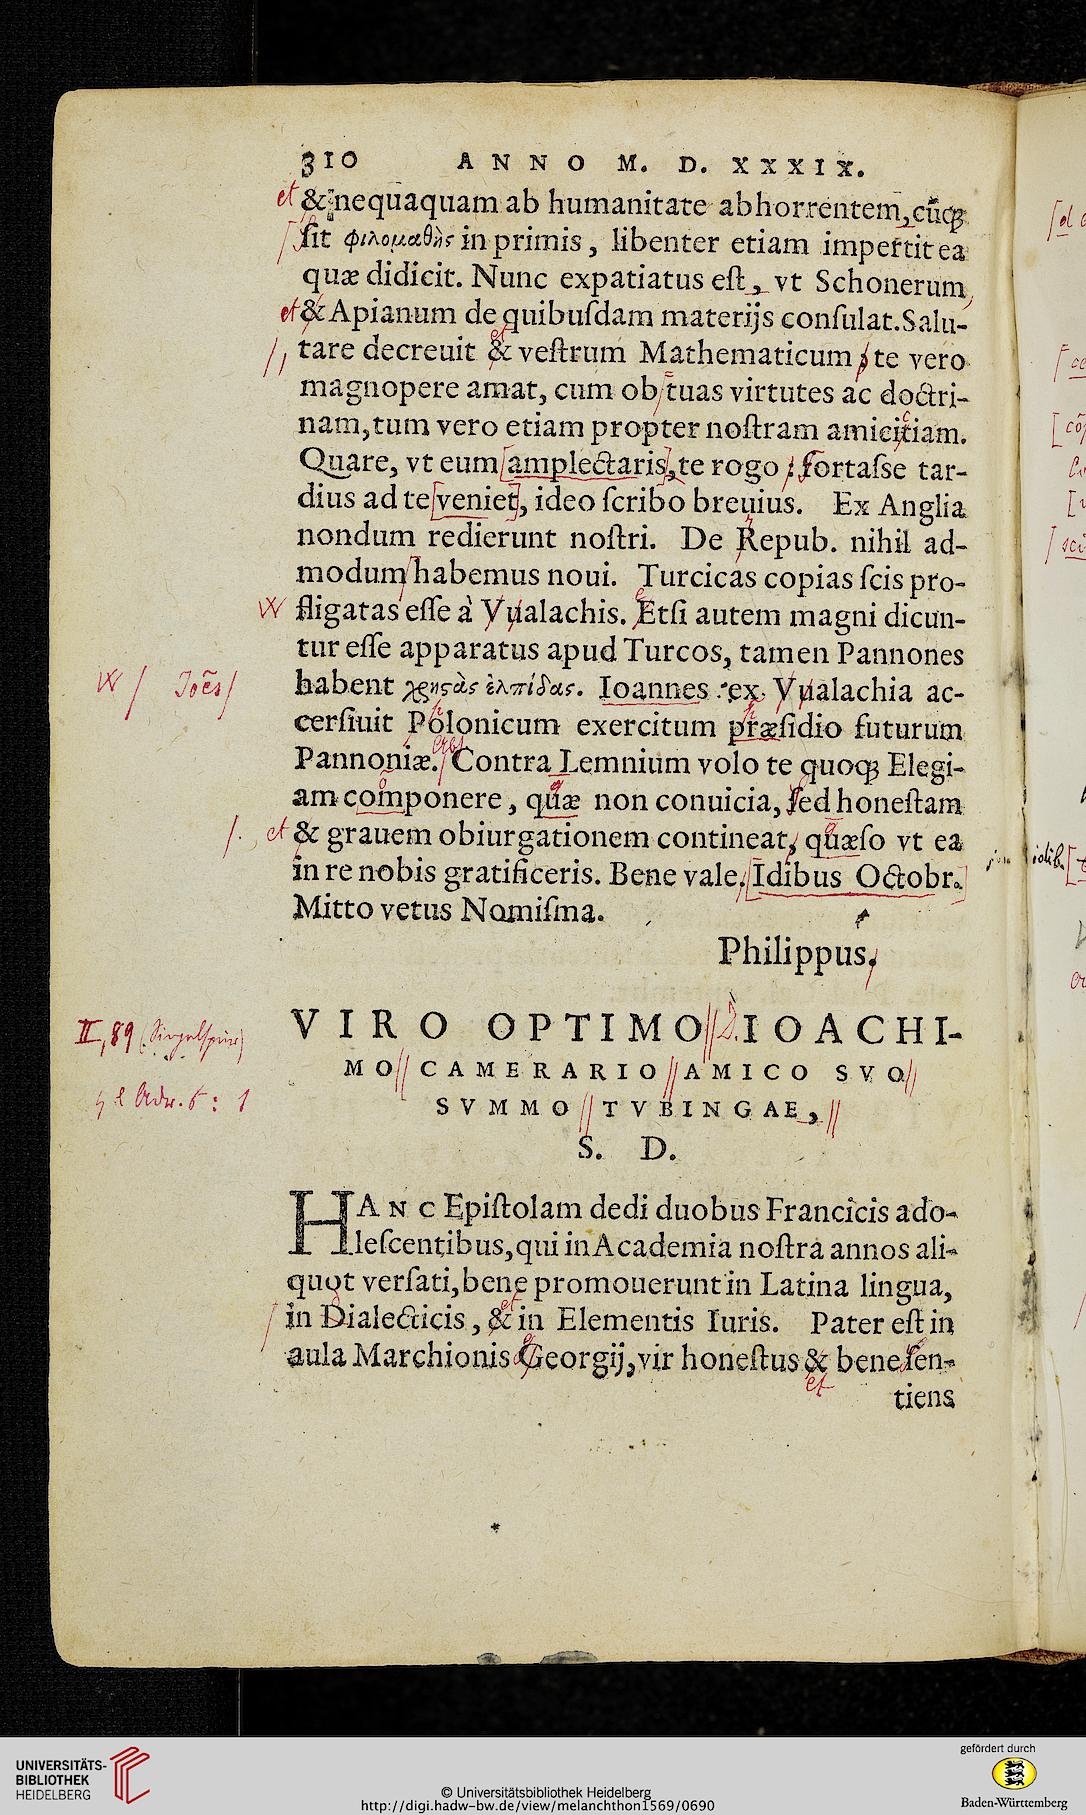 310 ANNO M. D. XXXIX.
et & nequaquam ab humanitate abhorrentem, cũqꝫ
ſit φιλομαθὴς in primis, libenter etiam impertit ea
quæ didicit. Nunc expatiatus eſt, vt Schonerum
et & Apianum de quibuſdam materijs conſulat. Salu-
tare decreuit & veſtrum Mathematicum, te vero
magnopere amat, cum ob tuas virtutes ac doctri-
nam, tum vero etiam propter noſtram amicitiam.
Quare, vt eum amplectaris, te rogo: fortaſse tar-
dius ad te veniet, ideo ſcribo breuius. Ex Anglia
nondum redierunt noſtri. De Repub. nihil ad-
modum habemus noui. Turcicas copias ſcis pro-
W fligatas eſſe à Vualachis. Etſi autem magni dicun-
tur eſſe apparatus apud Turcos, tamen Pannones
W / Joēs/ habent χρηςὰς ἐλπίδας. Ioannes ex Vualachia ac-
cerſiuit Polonicum exercitum præſidio futurum
Pannoniæ. Contra Lemnium volo te quoqꝫ Elegi-
am componere, quæ non conuicia, ſed honeſtam
et & grauem obiurgationem contineat, quæſo vt ea
in re nobis gratificeris. Bene vale. Idibus Octobr.
Mitto vetus Nomiſma.
Philippus.
II, 89
VIRO OPTIMO D. IOACHI-
MO CAMERARIO AMICO SVO
SVMMO TVBINGAE,
S. D.
HANC Epiſtolam dedi duobus Francicis ado-
leſcentibus, qui in Academia noſtra annos ali-
quot verſati, bene promouerunt in Latina lingua,
in Dialecticis, & in Elementis Iuris. Pater eſt in
aula Marchionis Georgij, vir honeſtus & bene ſen-
et
tiens
UNIVERSITÄTS-
BIBLIOTHEK
HEIDELBERG
© Universitätsbibliothek Heidelberg
http://digi.hadw-bw.de/view/melanchthon1569/0690
gefördert durch
Baden-Württemberg